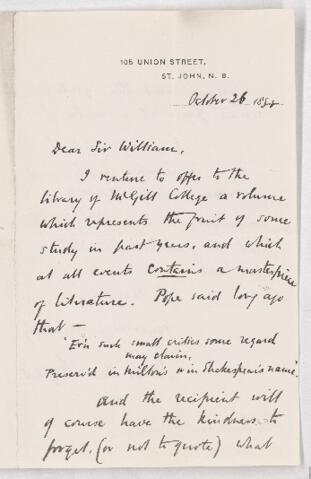 105 UNION STREET,
ST. JOHN, N. B.
October 26 188
Dear Sir William,
I venture to offer to the
library of McGill College a volume
which represents the fruit of some
study in past years, and which
at all events contains a masterpiece
of literature. Pope said long ago
that —
"Ev'n such small critics some regard
may claim,
Preserv'd in Milton's or in Shakespear's name".
And the recipient will
of course have the kindness to
forget, (or not to quote) what